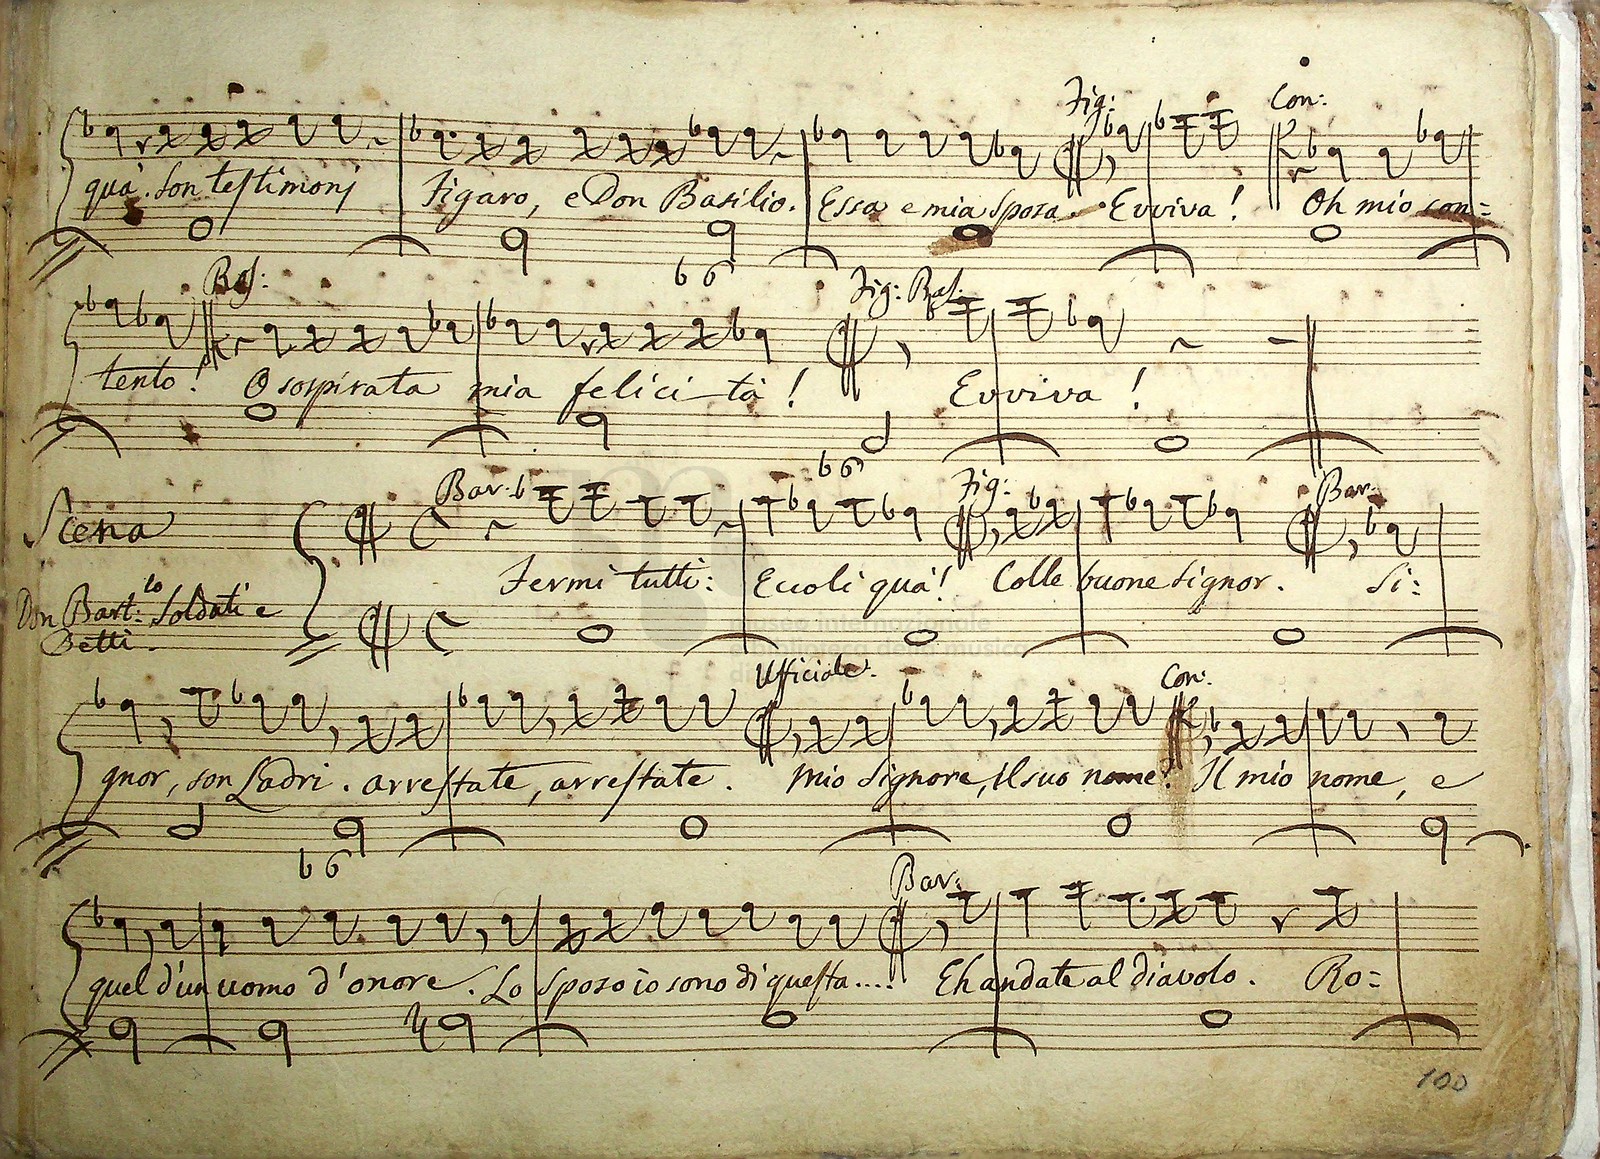 Fig: Con:
quà. Son testimonj Figaro, e Don Basilio. Essa e mia Sposa. Evviva! Oh mio con=
b 6
Bas: Fig: Bas.
tento! O sospirata mia felicità! Evviva!
b 6
Bar. Fig: Bar.
Scena
Fermi tutti: Eccoli quà! Colle buone Signor. Si:
Don Bart:lo Soldati e
Detti.
museo internazionale
e biblioteca della musica
di
Ufficiale. Con.
gnor, son Ladri. arrestate, arrestate. Mio Signore, il suo nome? Il mio nome, e
b 6
Bar.
quel d'un uomo d'onore. Lo Sposo io sono di questa.... Eh andate al diavolo. Ro=
100